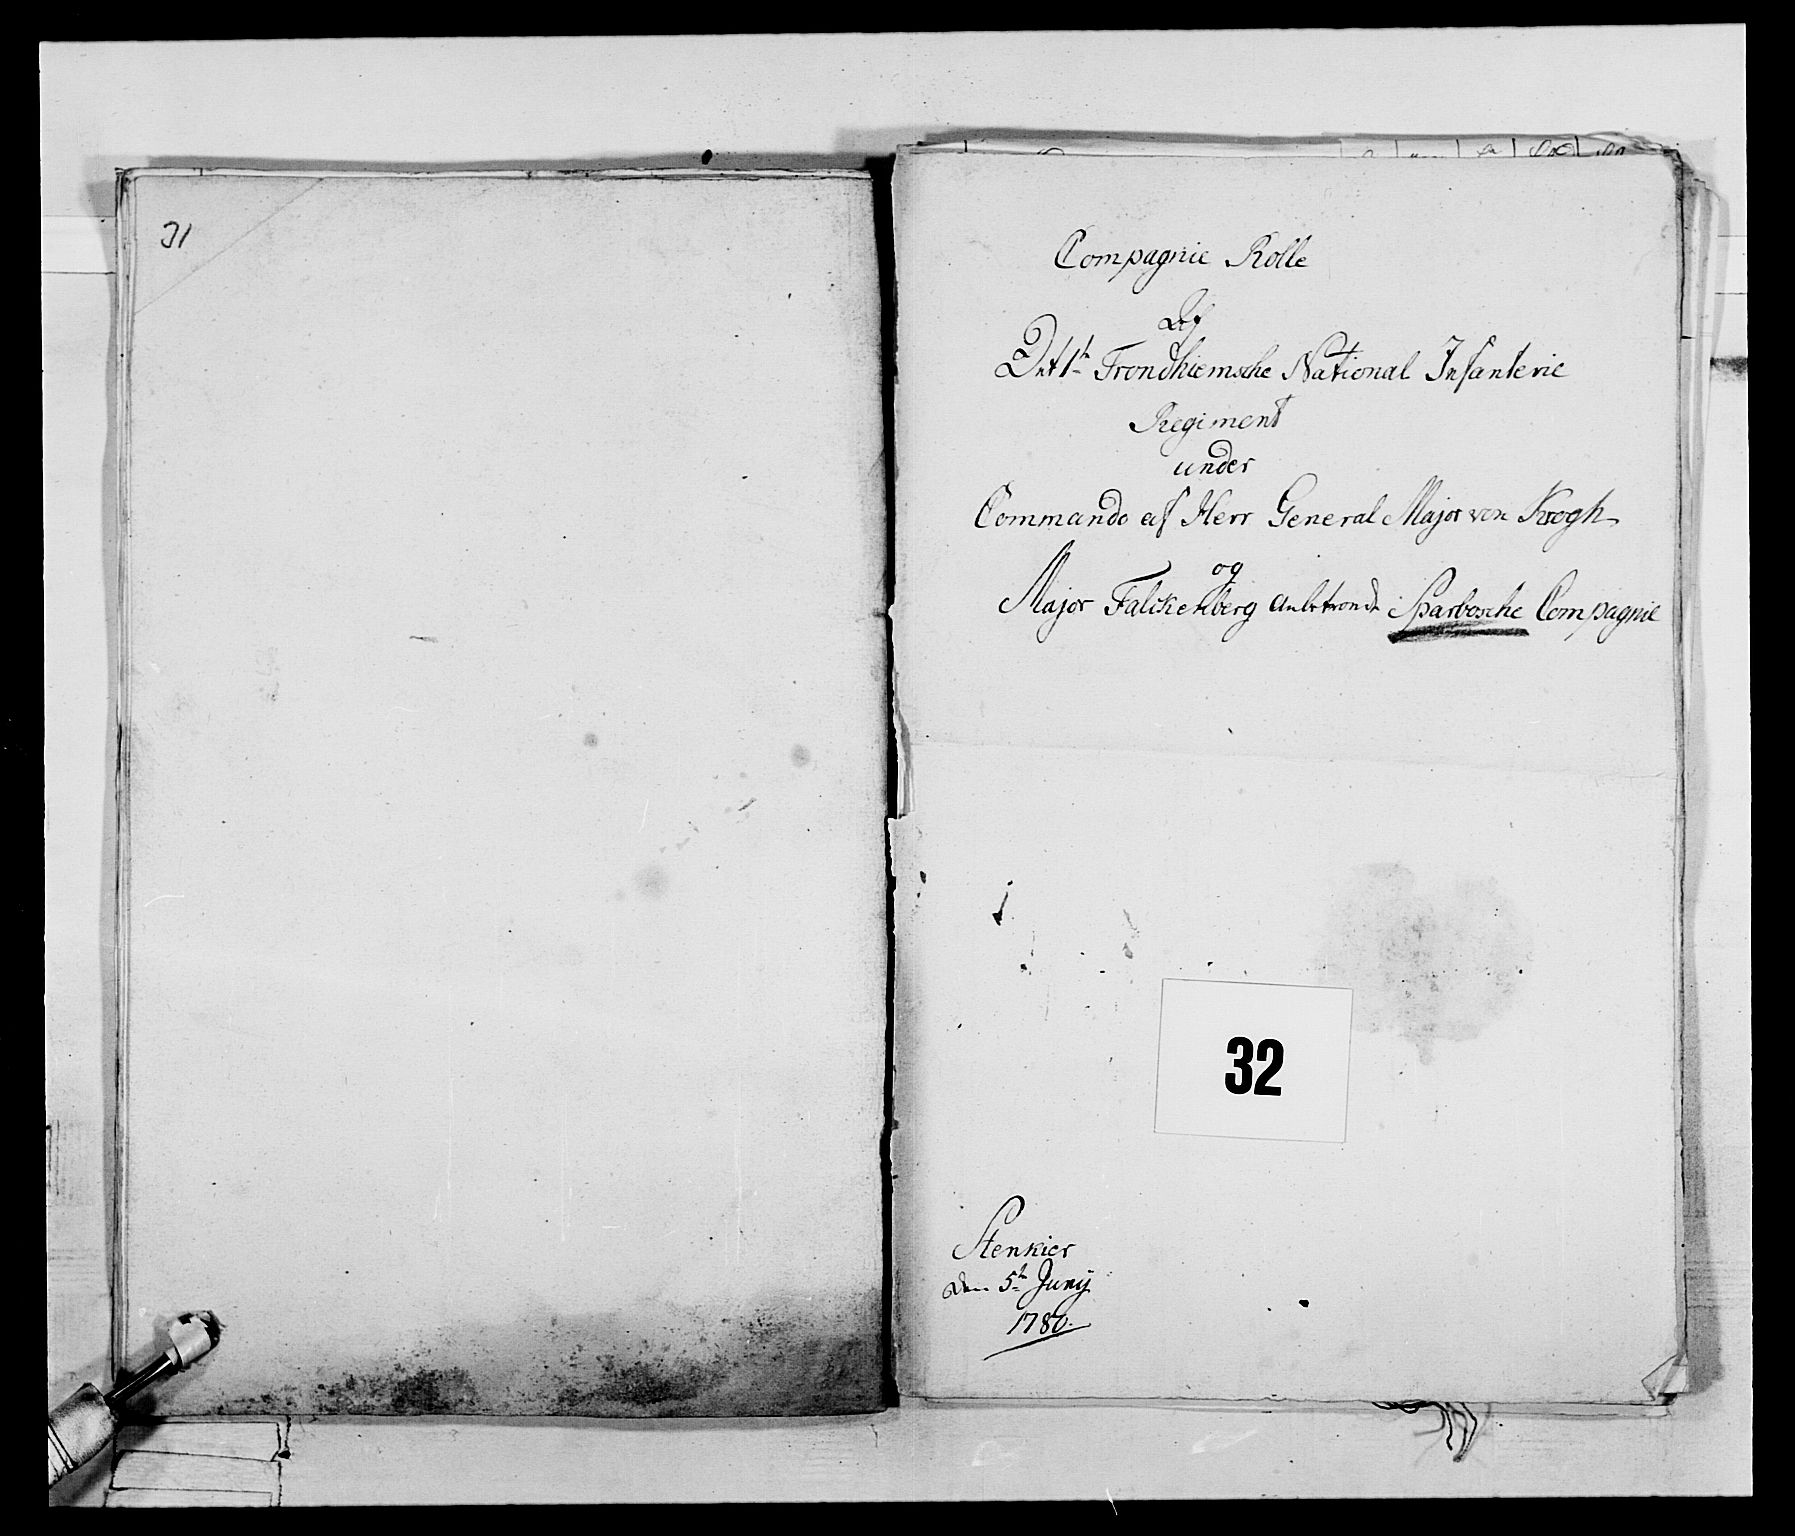 31
Compagnie Rolle
Af
Det 1te Trondhiemske National Infanterie
Regiment
under
Commando af Herr General Major von Krogh
og
Major Falckenberg anbetroede Sparboeske Compagnie
32
Stenkier
den 5te Juny
1780.